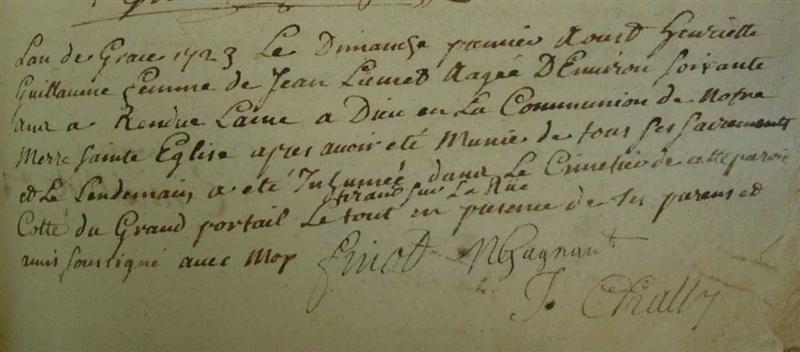 Lan de Grace 1723 Le Dimanche premier Aoust Henriette
Guillaume femme de Jean Lumet Aagée DEnviron soixante
ans a Rendue Lame a Dieu en La Communion de Notre
Merre Sainte Eglise apres avoir eté Munie de tous ses sacrements
et Le Lendemain a eté Inhumée dans Le Cimetier de cette paroisse
tirand sur La Rue
Cotté du Grand portail Le tout en presence de ses parens et
amis soussigné avec Moy
finot
J. Chally